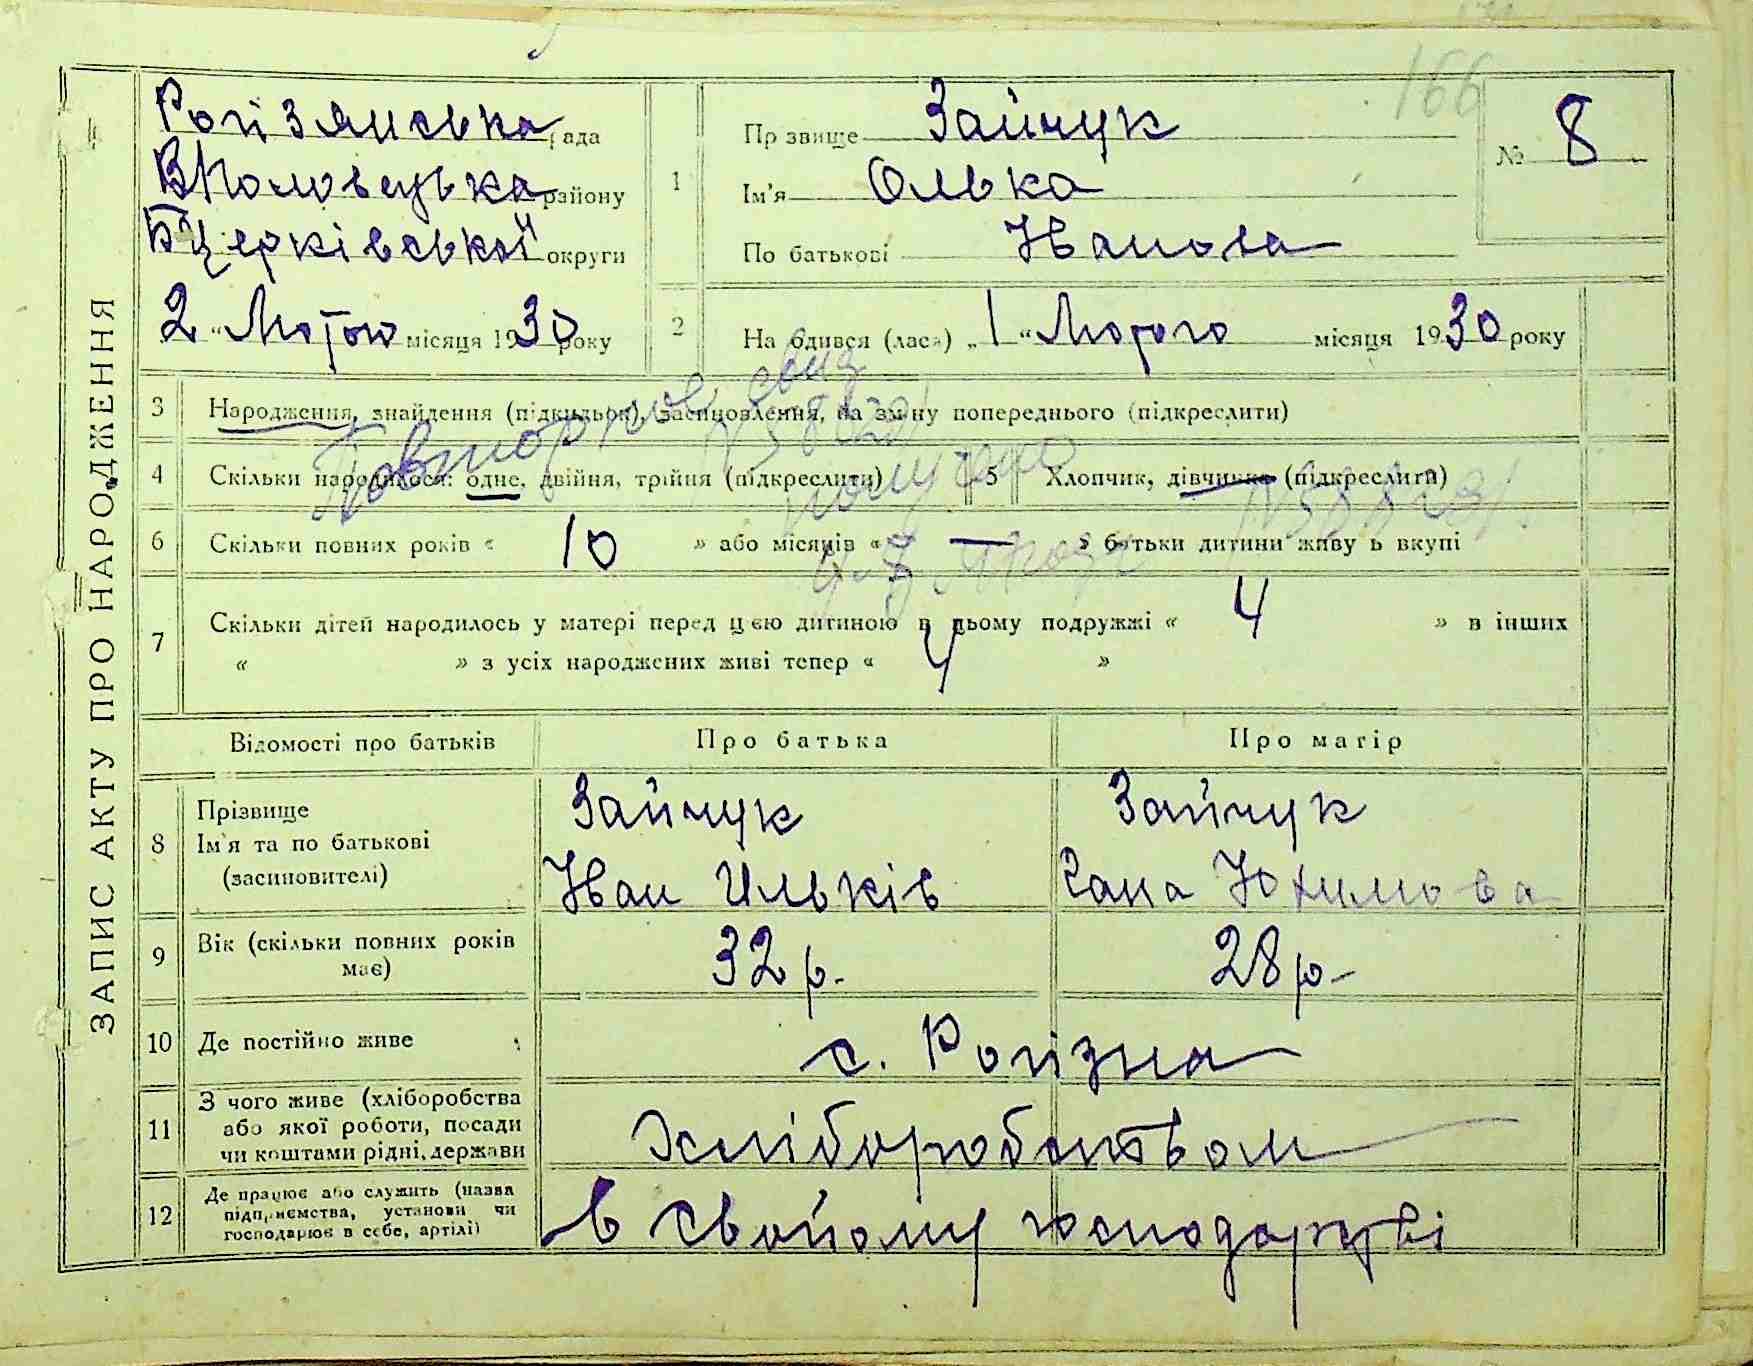 ЗАПИС АКТУ ПРО НАРОДЖЕННЯ
166
Рогізянська рада
ВПоловецька району
БЦерківської округи
2 „ Лютою місяця 1930 року
1
Прізвище Зайчук
Ім'я Олька
По батькові Иванова
№ 8
2
Народився (лась) „ 1 “ Лютого місяця 1930 року
3 Народження, знайдення (підкидьок), засиновлення, на зміну попереднього (підкреслити)
4 Скільки народилося: одне, двійня, трійня (підкреслити) 5 Хлопчик, дівчинка (підкреслити)
6 Скільки повних років « 10 » або місяців « — » батьки дитини живуть вкупі
7 Скільки дітей народилось у матері перед цією дитиною в цьому подружжі « 4 » в інших
« » з усіх народжених живі тепер « 4 »
Повторное
Відомості про батьків Про батька Про матір
8 Прізвище
Ім'я та по батькові
(засиновителі)
Зайчук
Иван Ильків
Зайчук
Юхимова
9 Вік (скільки повних років
має)
32 р.
28 р.
10 Де постійно живе с. Рогізна
11 З чого живе (хліборобства
або якої роботи, посади
чи коштами рідні, держави
Хліборобством
12 Де працює або служить (назва
підприємства, установи чи
господарює в себе, артілі)
в свойому господарстві